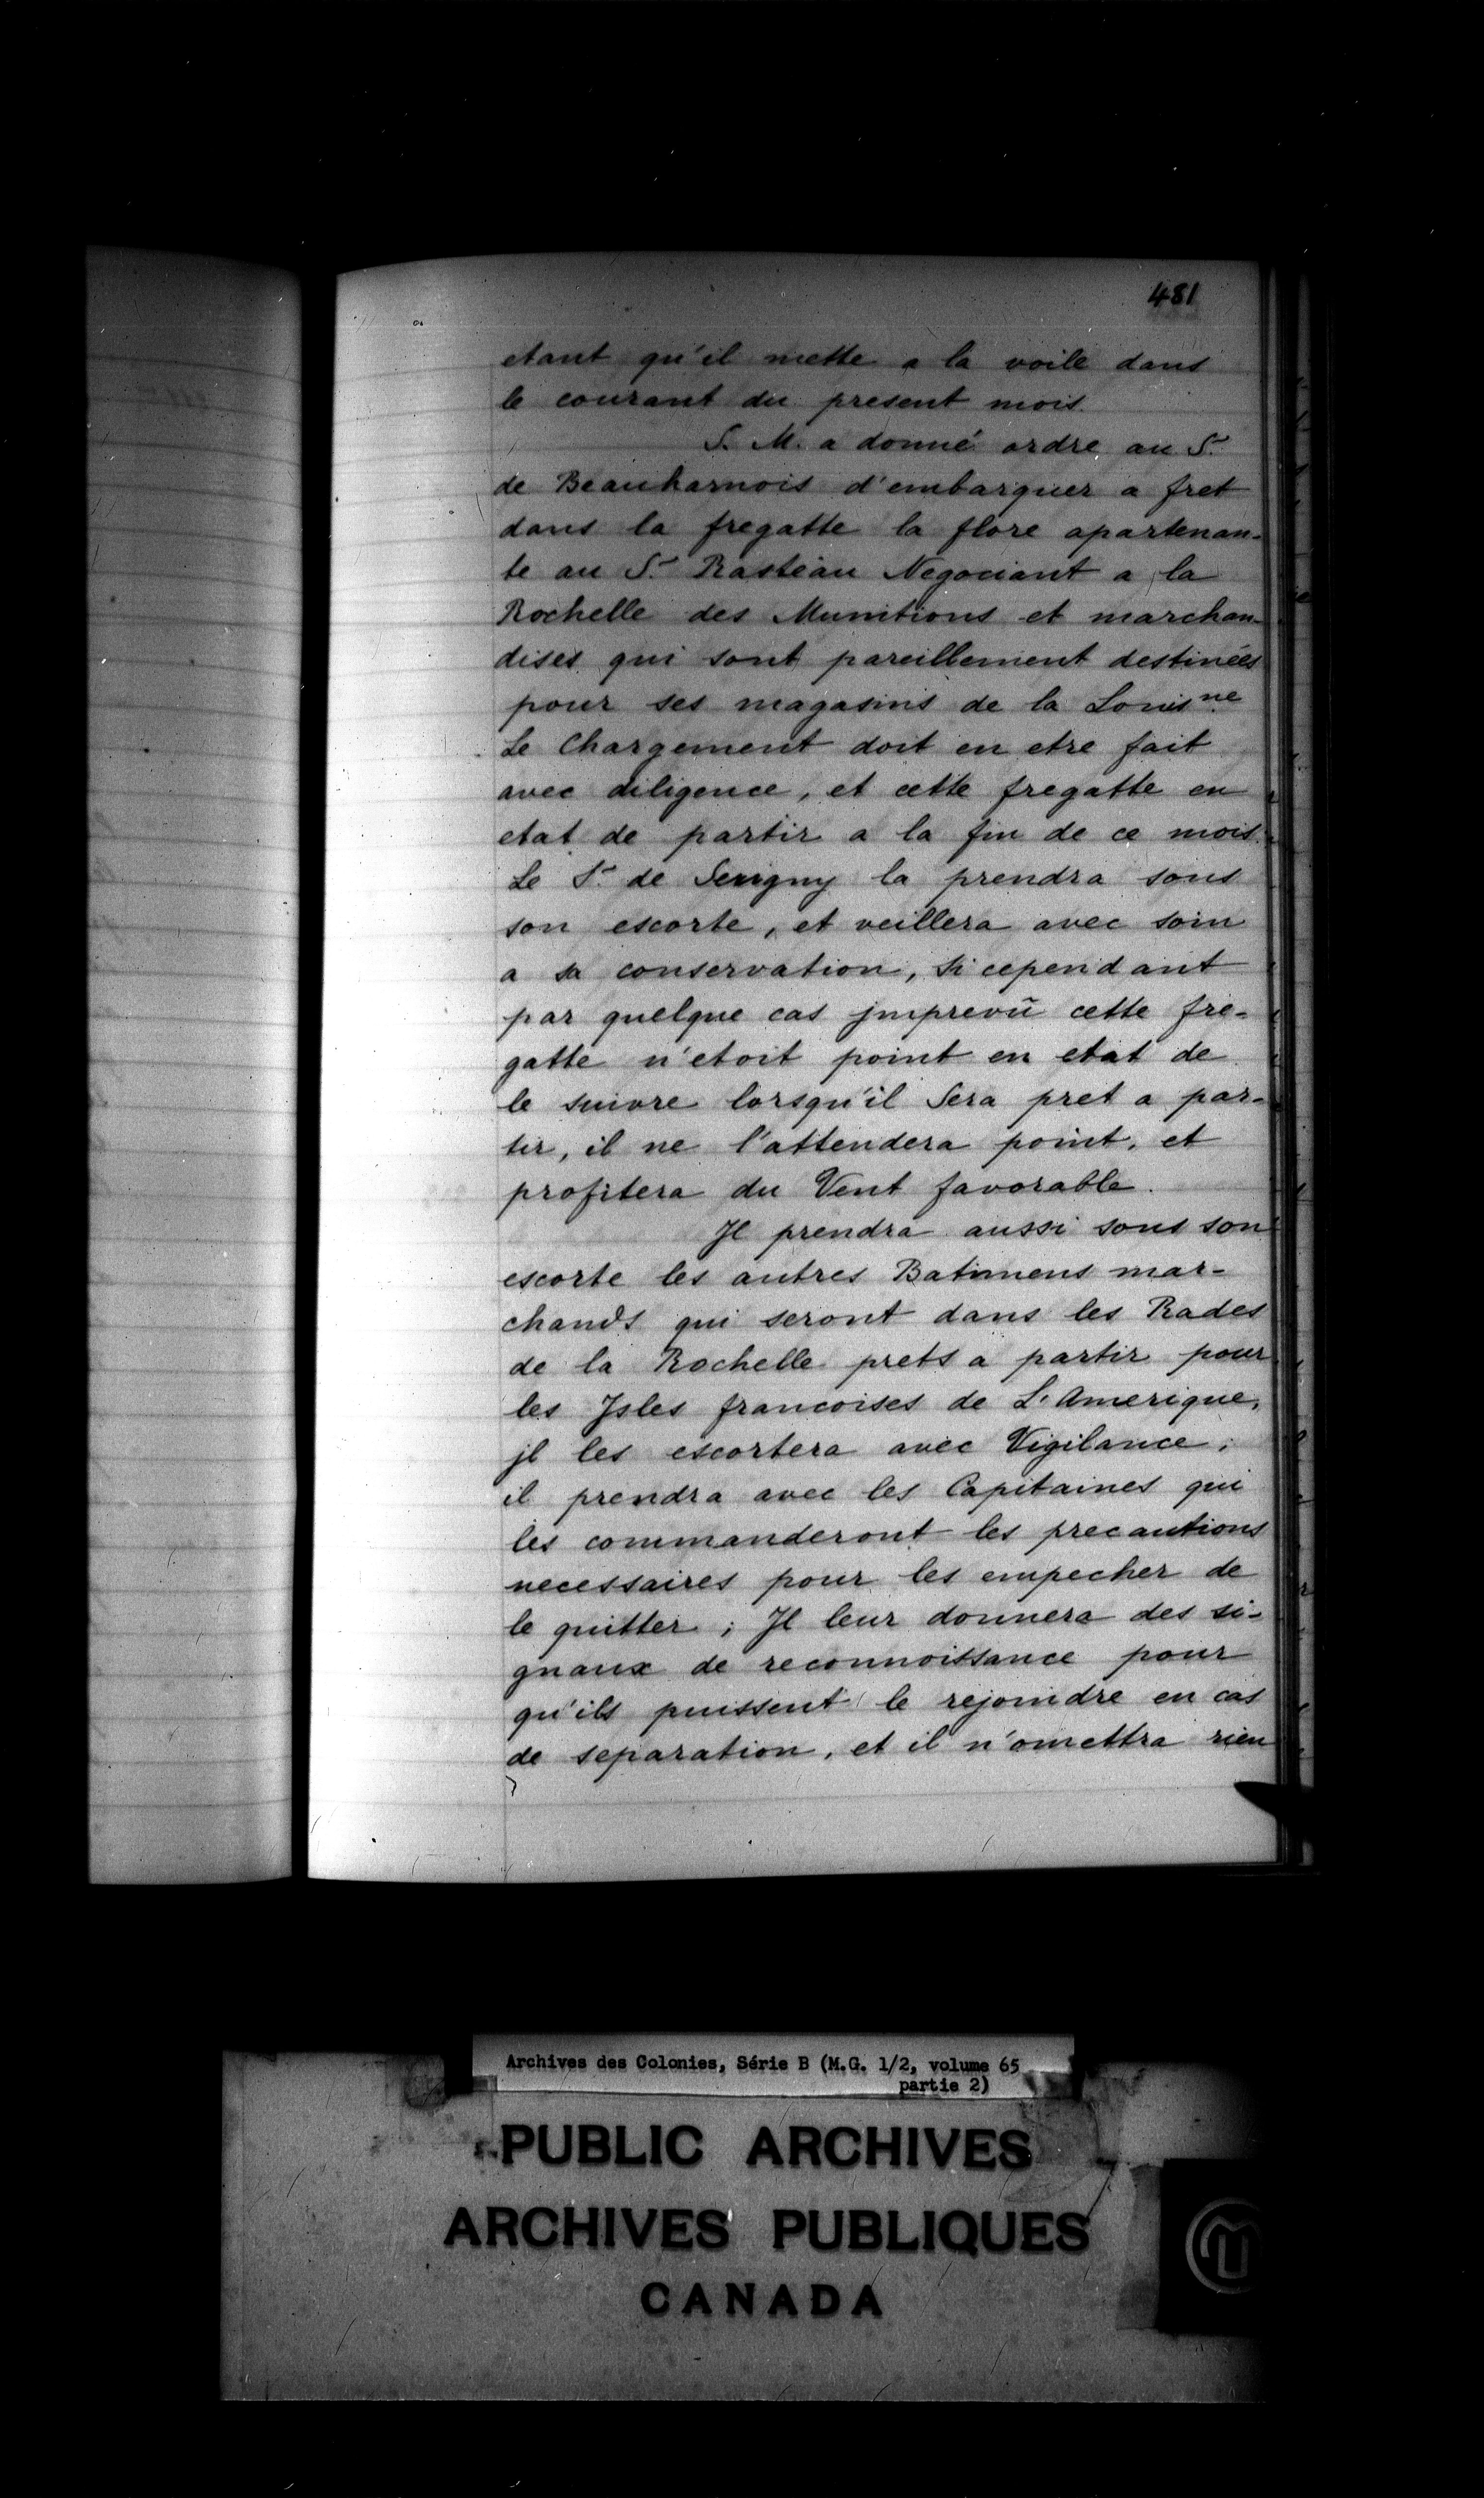 481
etant qu'il mette a la voile dans
le courant du present mois.
S. M. a donné ordre au S.r
de Beauharnois d'embarquer a fret
dans la fregatte la flore apartenan-
te au S.r Rasteau Negociant a la
Rochelle des Munitions et marchan-
dises qui sont pareillement destinées
pour ses magasins de la Louisne
Le Chargement doit en etre fait
avec diligence, et cette fregatte en
etat de partir a la fin de ce mois.
Le S.r de Serigny la prendra sous
son escorte, et veillera avec soin
a sa conservation, si cependant
par quelque cas jmprevû cette fre-
gatte n'etoit point en etat de
le suivre lorsqu'il sera pret a par-
tir, il ne l'attendera point, et
profitera du Vent favorable.
Jl prendra aussi sous son
escorte les autres Batimens mar-
chands qui seront dans les Rades
de la Rochelle prets a partir pour
les Jsles francoises de L'Amerique,
jl les escortera avec Vigilance;
il prendra avec les Capitaines qui
les commanderont les precautions
necessaires pour les empecher de
le quitter; Jl leur donnera des si-
gnaux de reconnoissance pour
qu'ils puissent le rejoindre en cas
de separation, et il n'omettra rien
Archives des Colonies, Série B (M.G. 1/2, volume 65
partie 2)
PUBLIC ARCHIVES
ARCHIVES PUBLIQUES
CANADA